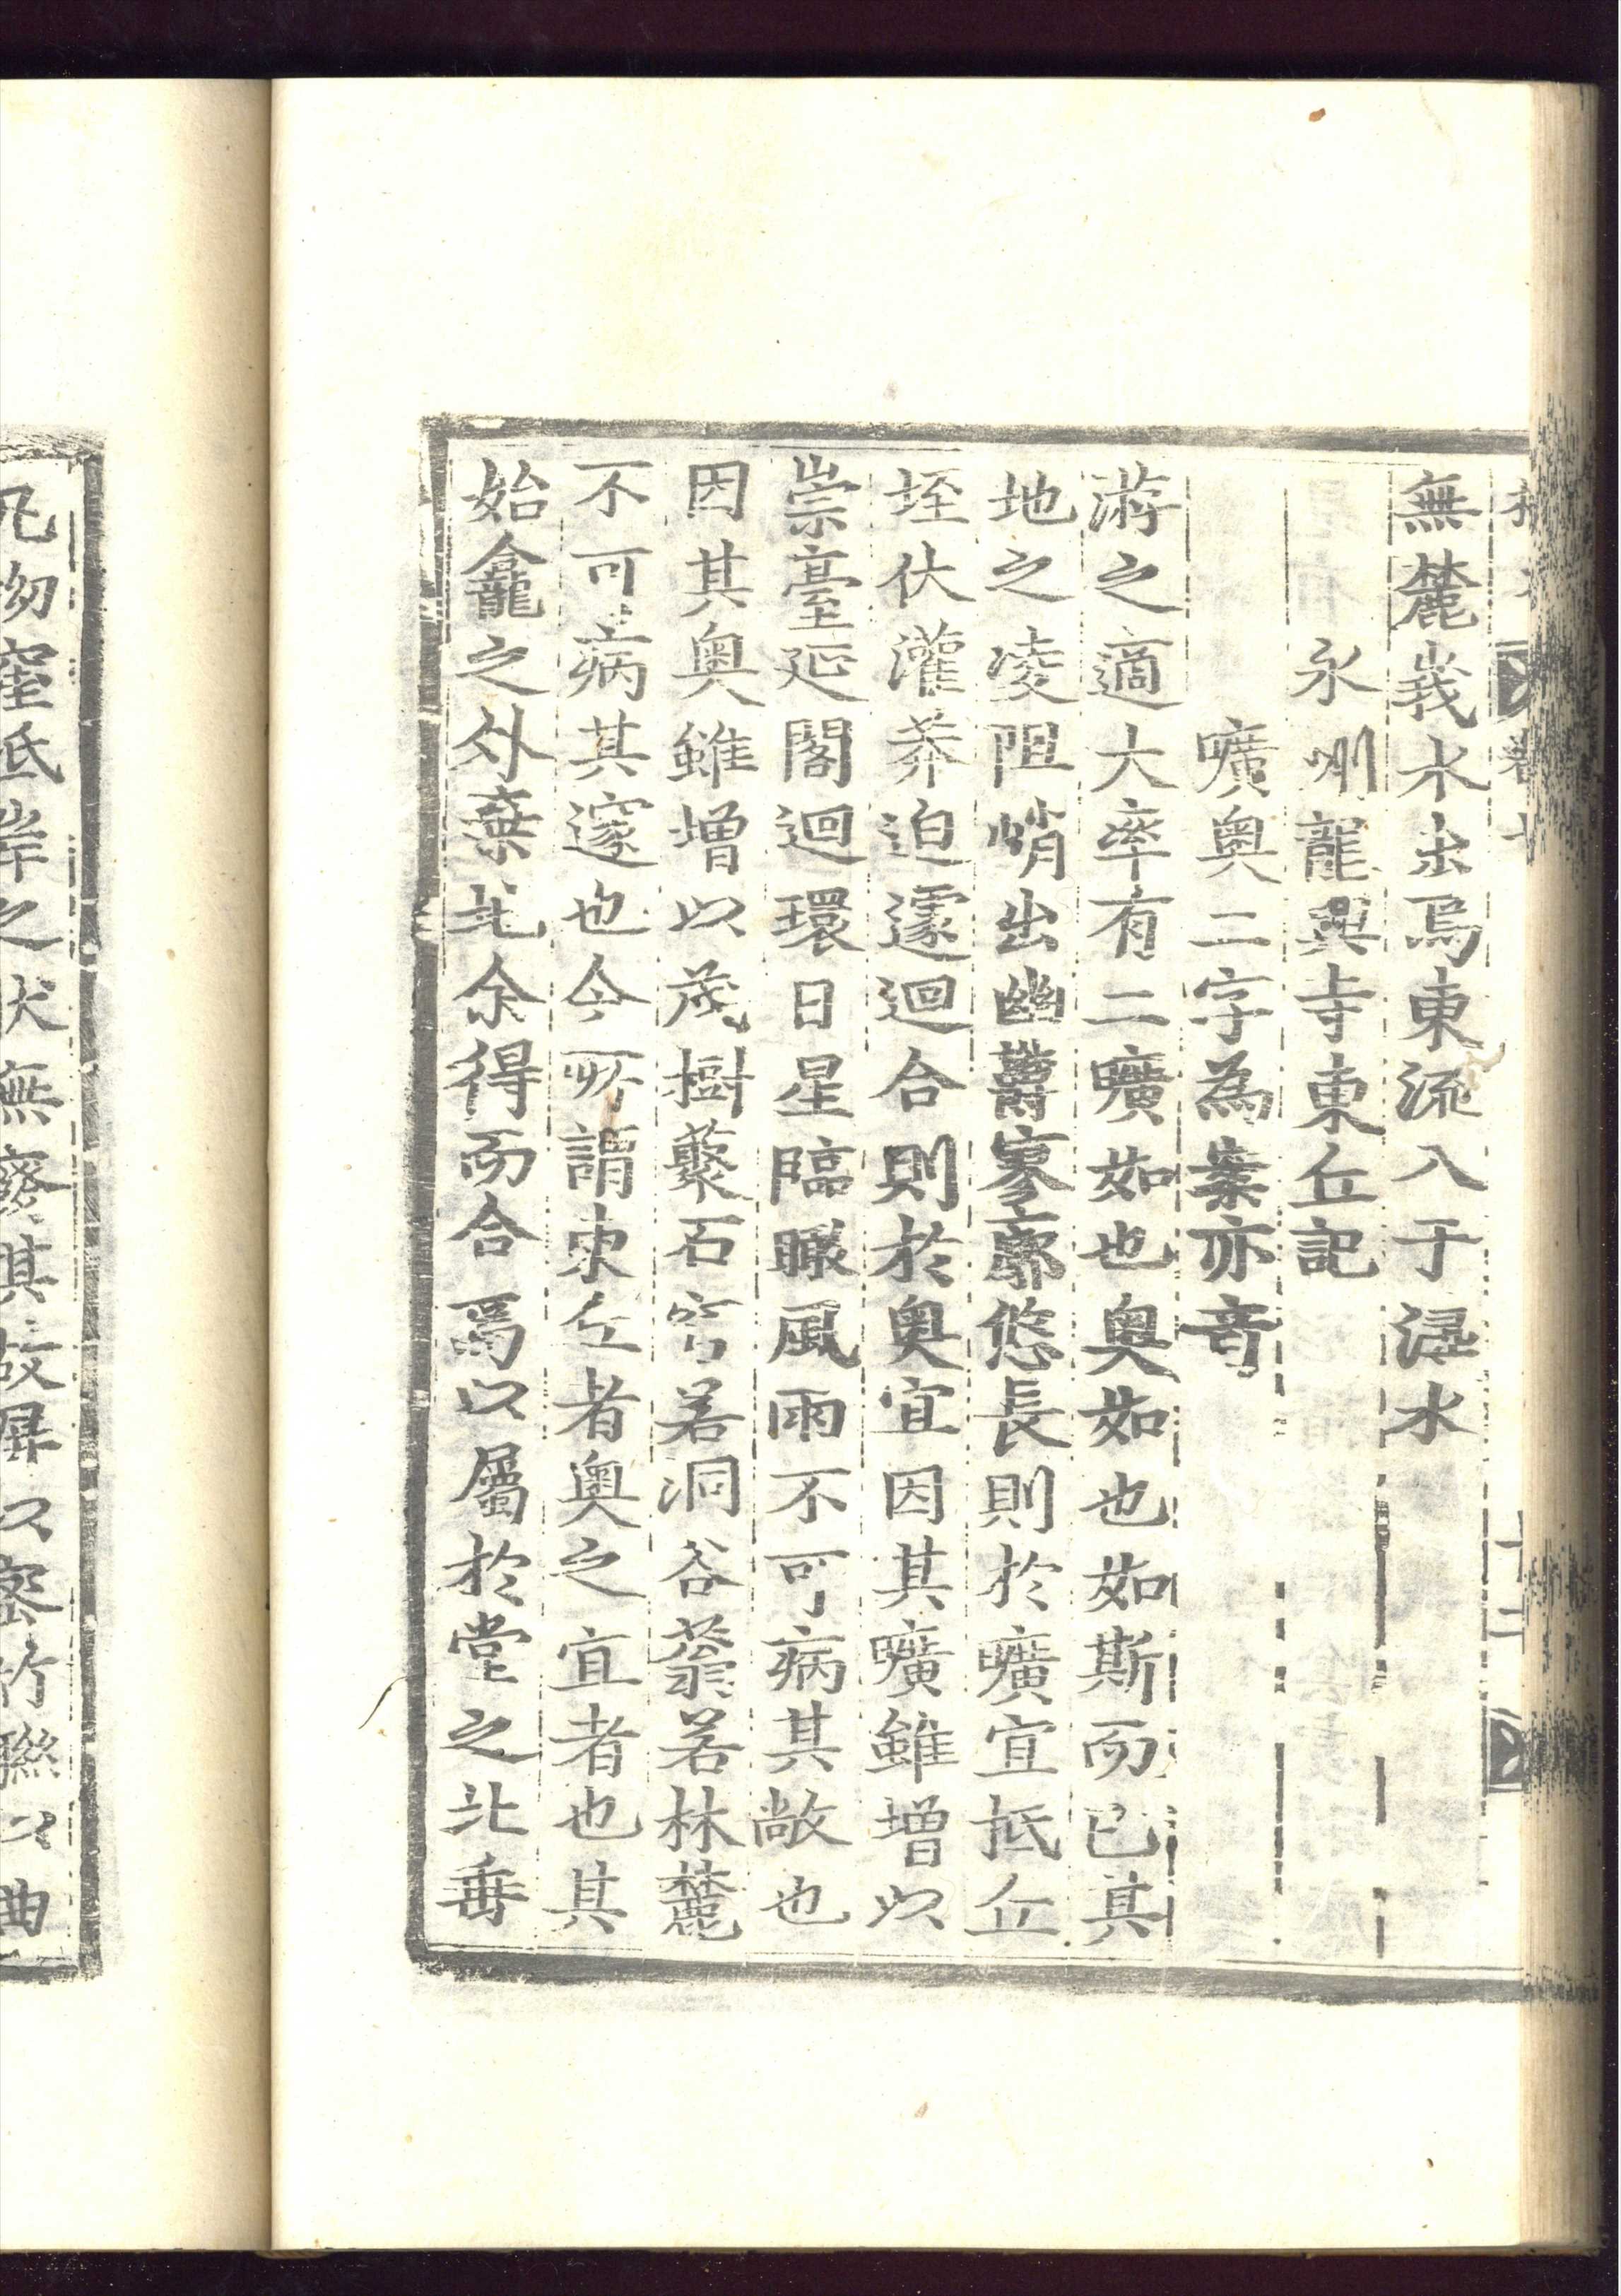 無麓峩水出焉東流入于潯水
永州龍興寺東丘記
曠奧二字為案亦奇
游之適大率有二曠如也奧如也如斯而已其
地之凌阻峭出幽鬱寥廓悠長則於曠宜抵丘
垤伏灌莽迫遽迴合則於奧宜因其曠雖增以
崇臺延閣迴環日星臨瞰風雨不可病其敞也
因其奧雖增以茂樹藂石穹若洞谷蓊若林麓
不可病其邃也今所謂東丘者奧之宜者也其
始龕之外棄地余得而合焉以屬於堂之北垂
凡坳窪坻岸之狀無廢其故屏以密竹聯以曲